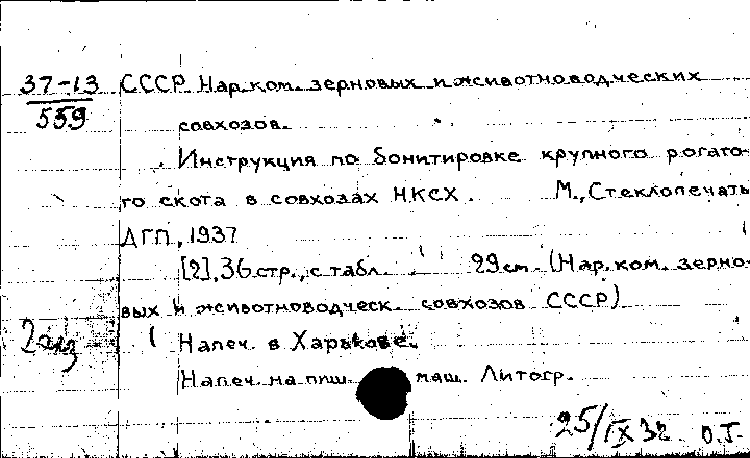 37-13 СССР. Нар.ком. зерновых и животноводческих
559
совхозов.
Инструкция по бонитировке крупного рогато-
го скота в совхозах НКСХ. М., Стеклопечать
ДГП, 1937
[2], 36 стр., с табл. 29 см. (Нар. ком. зерно-
вых и животноводческ. совхозов СССР)
2 экз
Напеч. в Харькове.
Напеч. на пиш. маш. Литогр.
25/IX 38 О.Г.